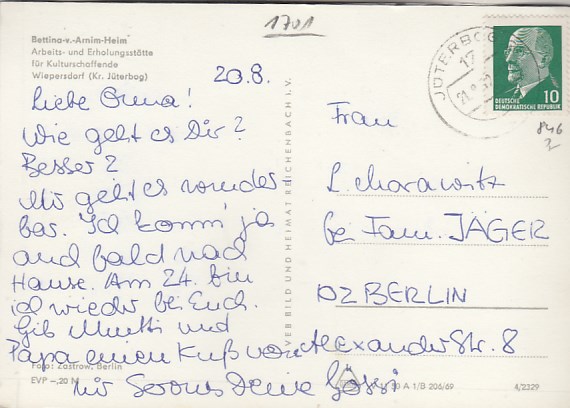 1701
Bettina-v.-Arnim-Heim
Arbeits- und Erholungsstätte
für Kulturschaffende
Wiepersdorf (Kr. Jüterbog)
20.8.
Liebe Omma!
Wie geht es Dir?
Besser?
Mir geht es wunder-
bar. Ich komm' ja
auch bald nach
Hause. Am 24. bin
ich wieder bei Euch.
Gib Mutti und
Papa einen Kuß von
mir Servus Deine
Foto: Zastrow, Berlin
EVP -,20 M
VERBILD UND HEIMAT REICHENBACH I. V.
JÜTERBOG
17
21.8.
10
DEUTSCHE
DEMOKRATISCHE REPUBLIK
846
Frau
bei Fam. JÄGER
BERLIN
Alexander Str. 8
A 1/B 206/69
4/2329